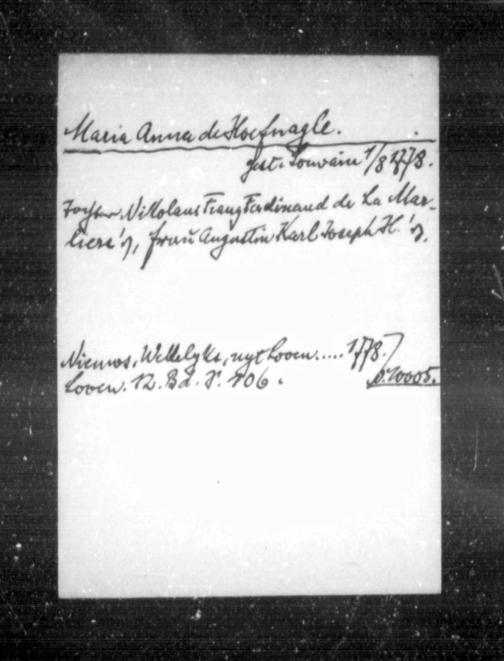 Maria Anna de Hoefnagle.
gest. Louvain 1/8 1778.
Tochter Nikolaus Franz Ferdinand de La Mar-
liere's, Frau Augustin Karl Joseph H.'s.
Nieuws, Wekkelyks, uyt Loven.....1778.
Loven. 12. Bd. S. 106.